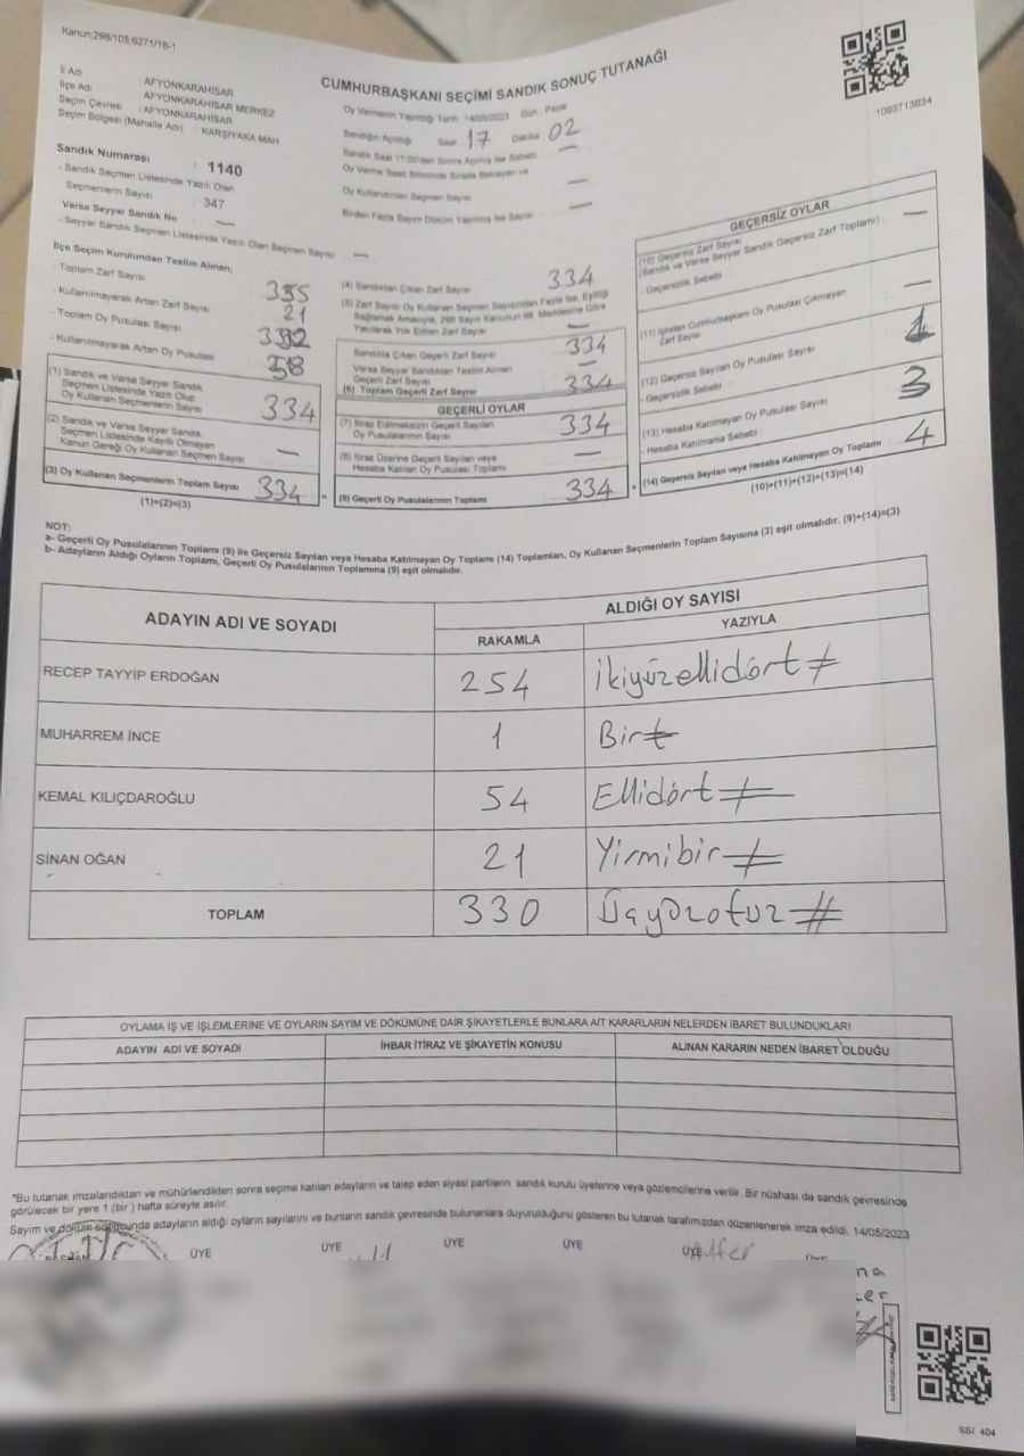 Kanun:298/105;6271/18-1
CUMHURBAŞKANI SEÇİMİ SANDIK SONUÇ TUTANAĞI
1093713834
İl Adı : AFYONKARAHİSAR
İlçe Adı : AFYONKARAHİSAR MERKEZ
Seçim Çevresi : AFYONKARAHİSAR
Seçim Bölgesi (Mahalle Adı) : KARŞIYAKA MAH
Sandık Numarası : 1140
- Sandık Seçmen Listesinde Yazılı Olan
Seçmenlerin Sayısı : 347
Varsa Seyyar Sandık No —
- Seyyar Sandık Seçmen Listesinde Yazılı Olan Seçmen Sayısı —
Oy Vermenin Yapıldığı Tarih : 14/05/2023 Gün : Pazar
Sandığın Açıldığı Saat : 17 Dakika : 02
Sandık Saat 17:00'den Sonra Açılmış İse Sebebi —
Oy Kullanılmayan Seçmen Sayısı —
Birden Fazla Sayım Döküm Yapılmış İse Sayısı —
İlçe Seçim Kurulundan Teslim Alınan;
- Toplam Zarf Sayısı 355
- Kullanılmayarak Artan Zarf Sayısı 21
- Toplam Oy Pusulası Sayısı 392
- Kullanılmayarak Artan Oy Pusulası 58
(1) Sandık ve Varsa Seyyar Sandık
Seçmen Listesinde Yazılı Olup
Oy Kullanan Seçmenlerin Sayısı 334
(2) Sandık ve Varsa Seyyar Sandık
Seçmen Listesinde Kayıtlı Olmayan
Kanun Gereği Oy Kullanan Seçmen Sayısı —
(3) Oy Kullanan Seçmenlerin Toplam Sayısı 334
(1)+(2)=(3)
(4) Sandıktan Çıkan Zarf Sayısı 334
(5) Zarf Sayısı Oy Kullanan Seçmen Sayısından Fazla İse, Eşitliği
Sağlamak Amacıyla, 298 Sayılı Kanunun 98. Maddesine Göre
Yakılarak Yok Edilen Zarf Sayısı —
Sandıkta Çıkan Geçerli Zarf Sayısı 334
Varsa Seyyar Sandıktan Teslim Alınan
Geçerli Zarf Sayısı —
(6) Toplam Geçerli Zarf Sayısı 334
GEÇERLİ OYLAR
(7) İtiraz Edilmeksizin Geçerli Sayılan
Oy Pusulalarının Sayısı 334
(8) İtiraz Üzerine Geçerli Sayılan veya
Hesaba Katılan Oy Pusulası Toplamı —
(9) Geçerli Oy Pusulalarının Toplamı 334
GEÇERSİZ OYLAR
(10) Geçersiz Zarf Sayısı
(Sandık ve Varsa Seyyar Sandık Geçersiz Zarf Toplamı) : —
Geçersizlik Sebebi :
(11) İçinden Cumhurbaşkanı Oy Pusulası Çıkmayan
Zarf Sayısı —
(12) Geçersiz Sayılan Oy Pusulası Sayısı 1
- Geçersizlik Sebebi :
(13) Hesaba Katılmayan Oy Pusulası Sayısı 3
- Hesaba Katılmama Sebebi :
(14) Geçersiz Sayılan veya Hesaba Katılmayan Oy Toplamı 4
(10)+(11)+(12)+(13)=(14)
NOT:
a- Geçerli Oy Pusulalarının Toplamı (9) ile Geçersiz Sayılan veya Hesaba Katılmayan Oy Toplamı (14) Toplamları, Oy Kullanan Seçmenlerin Toplam Sayısına (3) eşit olmalıdır. (9)+(14)=(3)
b- Adayların Aldığı Oyların Toplamı, Geçerli Oy Pusulalarının Toplamına (9) eşit olmalıdır.
ADAYIN ADI VE SOYADI
ALDIĞI OY SAYISI
RAKAMLA YAZIYLA
RECEP TAYYİP ERDOĞAN 254 ikiyüzellidört
MUHARREM İNCE 1 Bir
KEMAL KILIÇDAROĞLU 54 Ellidört
SİNAN OĞAN 21 Yirmibir
TOPLAM 330 Üçyüzotuz
OYLAMA İŞ VE İŞLEMLERİNE VE OYLARIN SAYIM VE DÖKÜMÜNE DAİR ŞİKAYETLERLE BUNLARA AİT KARARLARIN NELERDEN İBARET BULUNDUKLARI
ADAYIN ADI VE SOYADI İHBAR İTİRAZ VE ŞİKAYETİN KONUSU ALINAN KARARIN NEDEN İBARET OLDUĞU
*Bu tutanak imzalandıktan ve mühürlendikten sonra seçime katılan adayların ve talep eden siyasi partilerin sandık kurulu üyelerine veya gözlemcilerine verilir. Bir nüshası da sandık çevresinde
görülecek bir yere 1 (bir) hafta süreyle asılır.
Sayım ve döküm sonucunda adayların aldığı oyların sayılarını ve bunların sandık çevresinde bulunanlara duyurulduğunu gösteren bu tutanak tarafımızdan düzenlenerek imza edildi. 14/05/2023
ÜYE ÜYE ÜYE ÜYE ÜYE
SSİ: 404